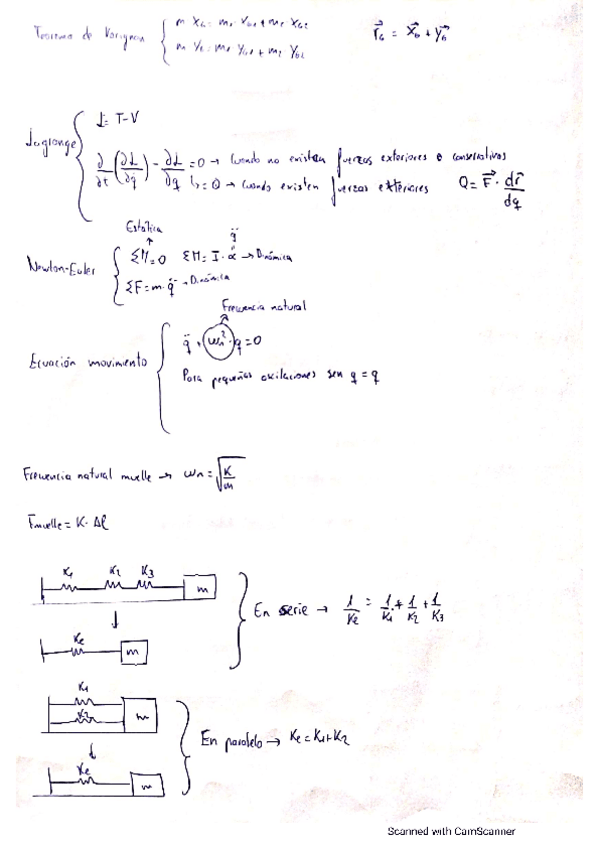 Teorema de Varignon { m XG = m1 XG1 + m2 XG2
m YG = m1 YG1 + m2 YG2
r⃗G = X⃗G + Y⃗G
Lagrange { L = T-V
∂/∂t (∂L/∂q̇) - ∂L/∂q = 0 → Cuando no existen fuerzas exteriores o conservativas
↳ = Q → Cuando existen fuerzas exteriores Q = F⃗ · dr⃗/dq
Estática
↑
Newton-Euler { ΣM = 0 ΣM = I · α → Dinámica
q̈
ΣF = m · q̈ → Dinámica
Frecuencia natural
Ecuación movimiento { q̈ + ωn² · q = 0
Para pequeñas oscilaciones sen q = q
Frecuencia natural muelle → ωn = √(K/m)
Fmuelle = K · Δl
K1 K2 K3
m
↓
Ke
m
En serie → 1/Ke = 1/K1 + 1/K2 + 1/K3
K1
K2
m
↓
Ke
m
En paralelo → Ke = K1 + K2
Scanned with CamScanner